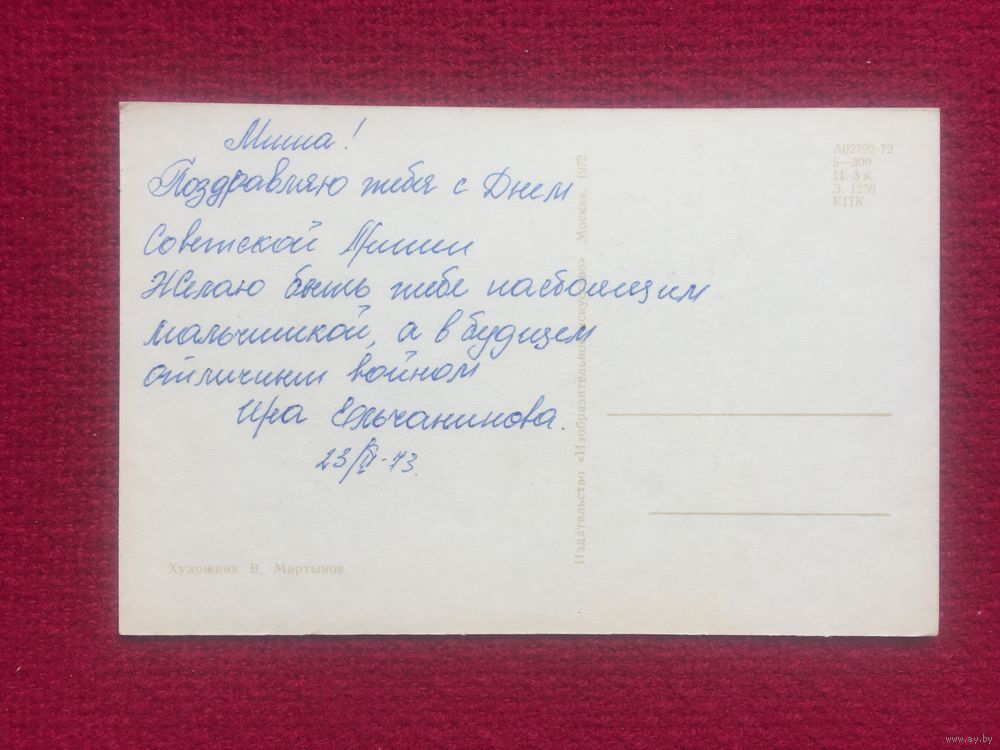 Миша!
Поздравляю тебя с Днем
Советской Армии
Желаю быть тебе настоящим
мальчишкой, а в будущем
отличным войном
Ира Ельчанинова.
23/II-73.
Художник В. Мартынов
Издательство «Изобразительное искусство» Москва, 1972
А02792-72
5—300
Ц. 3 к.
З. 1250
КПК
www.ay.by